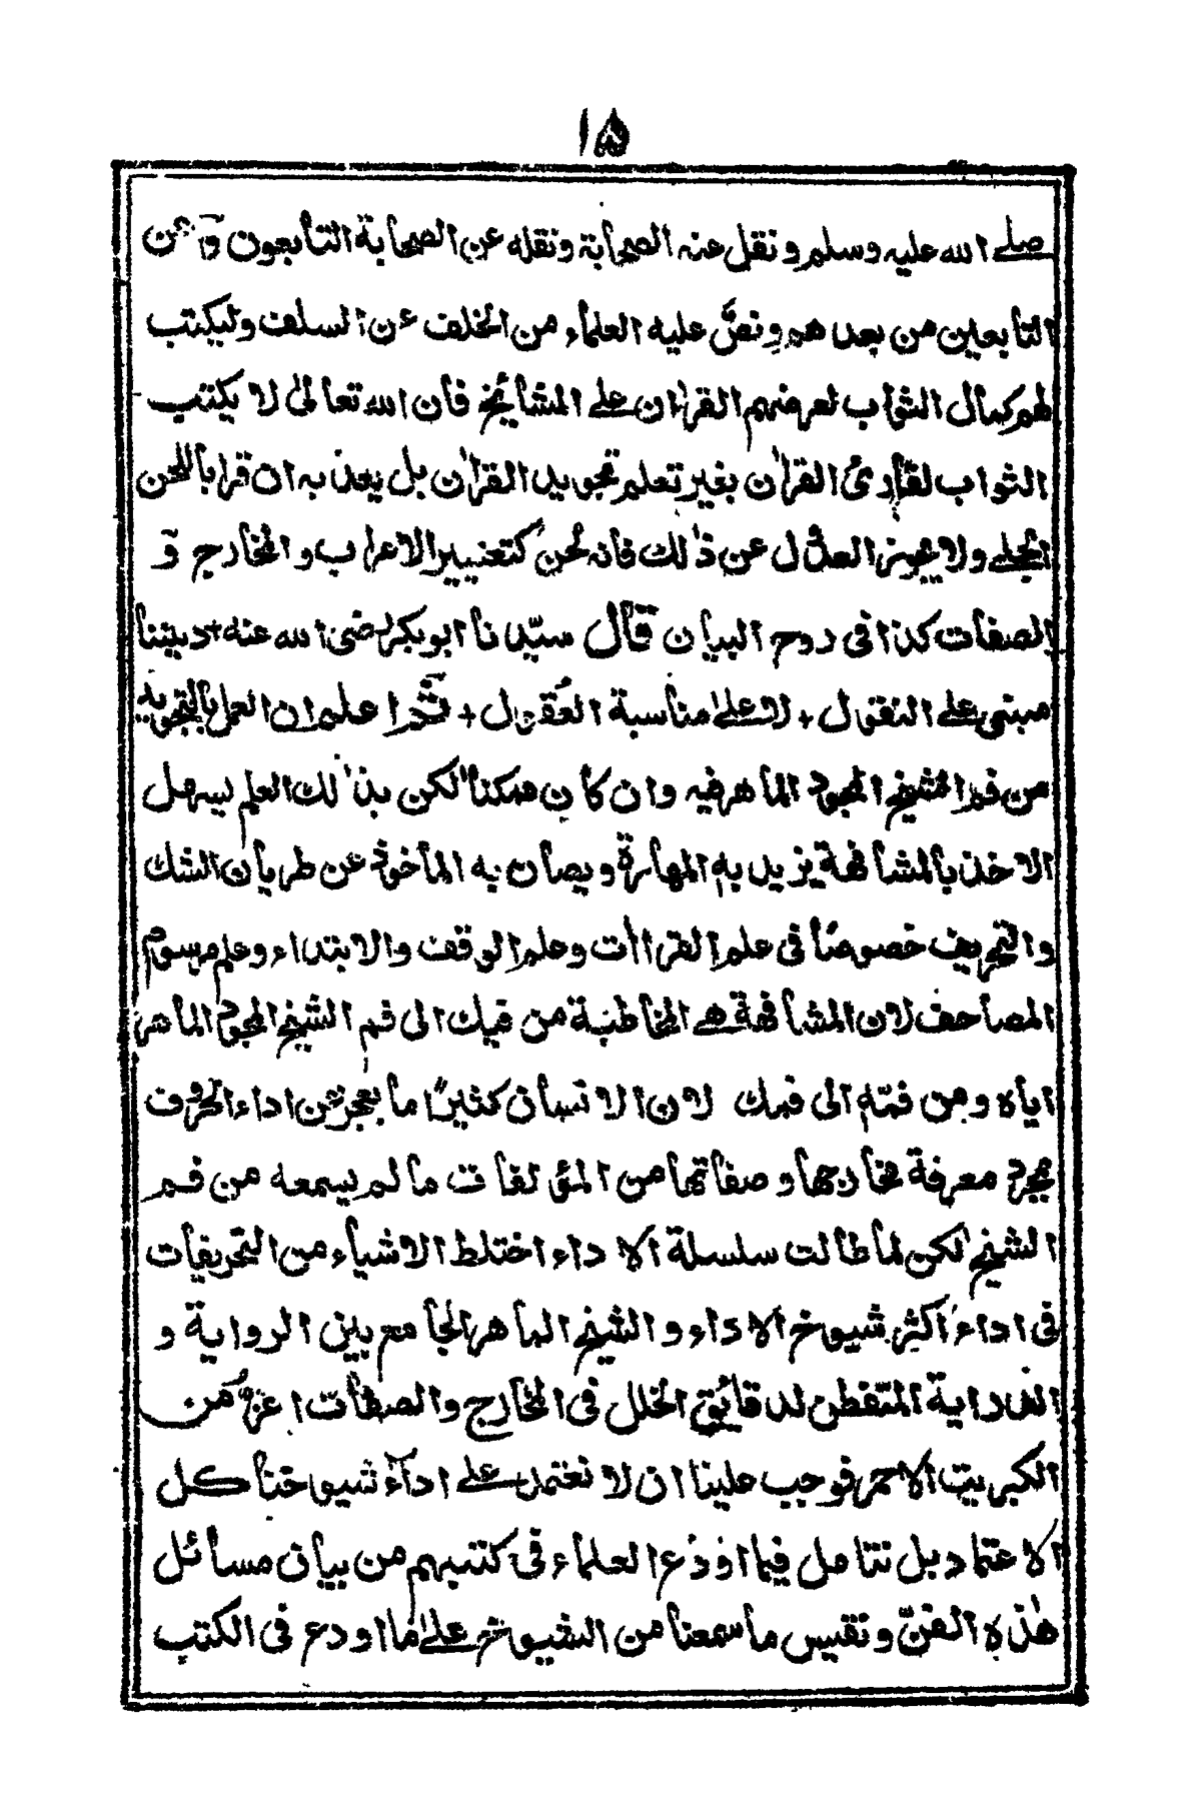 ١٥
صلے الله عليه وسلم ونقل عنه الصحابة ونقله عن الصحابة التابعون وعن
التابعين من بعدهم ونصَّ عليه العلماء من الخلف عن السلف وليكتب
لهم كمال الثواب لعرضهم القراٰن علے المشائخ فان الله تعالیٰ لا يكتب
الثواب لقاریٔ القراٰن بغير تعلم تجويد القراٰن بل يعذبه ان قرا باللحن
الجلے ولا يجوز العدُّل عن ذٰلك فانه لحنٌ كتغيير الاعراب والمخارج وَ
الصفات كذا فی روح البيان قال سيّدنا ابوبكر رضی الله عنه + ديننا
مبنی علے النقول + لا علےٰ مناسبة العُقول + ثمّ اعلم ان العمل بالتجويد
من فم الشيخ المجود الماهر فيه وان كان ممكنا لكن بذٰلك العلم يسهل
الاخذ بالمشافهة يزيد به المهارة ويصان به الماخوذ عن طريان الشك
والتحريف خصوصًا فی علم القراأت وعلم الوقف والابتداء وعلم مرسوم
المصاحف لان المشافهة هے المخاطبة من فيك الى فم الشيخ المجود الماهر
اياه ومن فمّه الى فمك لان الانسان كثيرًا ما يعجز عن اداء الحروف
بمجرد معرفة مخارجها وصفاتها من المؤلفات مالم يسمعه من فم
الشيخ لكن لما طالت سلسلة الاداء اختلط الاشياء من التحريفات
فی اداء اكثر شيوخ الاداء والشيخ الماهر الجامع بين الرواية و
الدراية المتفطن لدقائق الخلل فی المخارج والصفات اعزُّ من
الكبريت الاحمر فوجب علينا ان لا نعتمد علے اداء شيوخنا كل
الاعتماد بل نتامل فيما اودع العلماء فی كتبهم من بيان مسائل
هٰذه الفنّ ونقيس ما سمعنا من الشيوخ علےٰ ما اودع فی الكتب